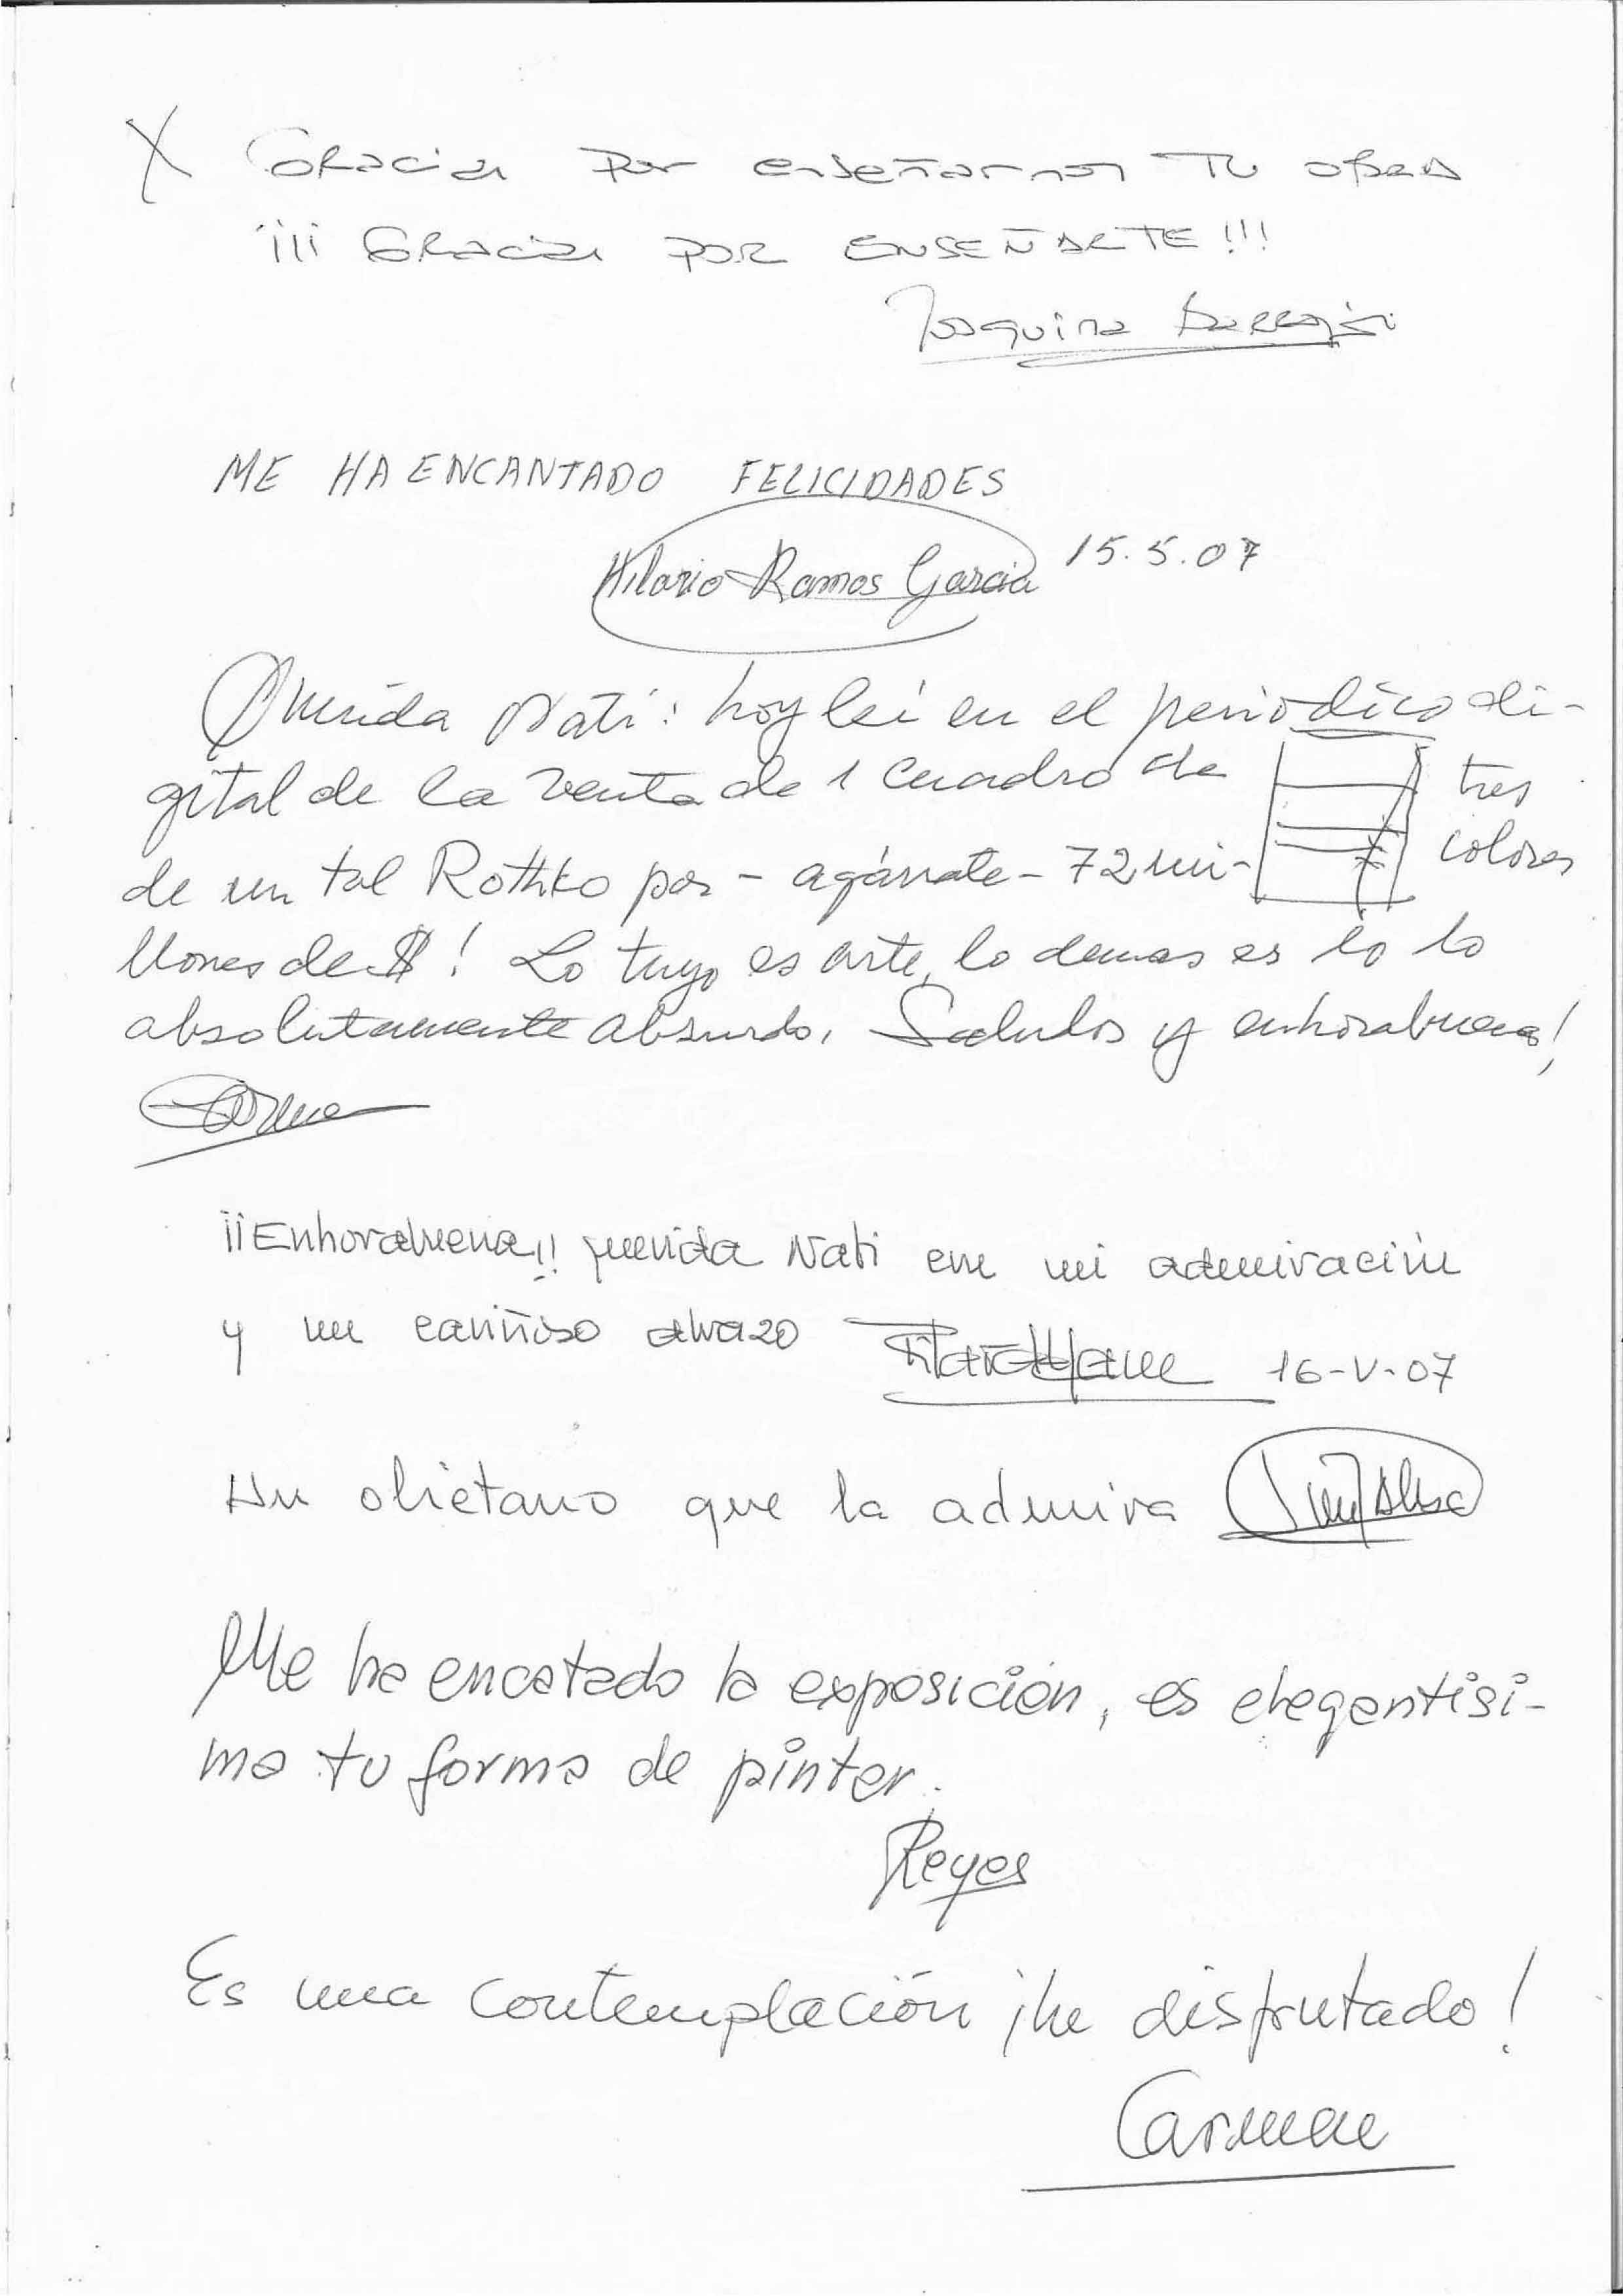 X Gracias por enseñarnos tu obra
¡¡¡ Gracias POR ENSEÑARTE !!!
Joaquina
ME HA ENCANTADO FELICIDADES
Hilario Ramos Garcia 15.5.07
Querida Nati: hoy leí en el periodico di-
gital de la venta de 1 cuadro de tres
colores
de un tal Rothko por - agárrate - 72 mi-
llones de $! Lo tuyo es arte, lo demas es lo lo
absolutamente absurdo. Saludos y enhorabuena!
¡¡Enhorabuena!! querida Nati con mi admiración
y un cariñoso abrazo 16-V-07
Un olietano que la admira
Me ha encatado la exposición, es elegantisi-
ma tu forma de pintar.
Reyes
Es una contemplación ¡he disfrutado!
Carmen